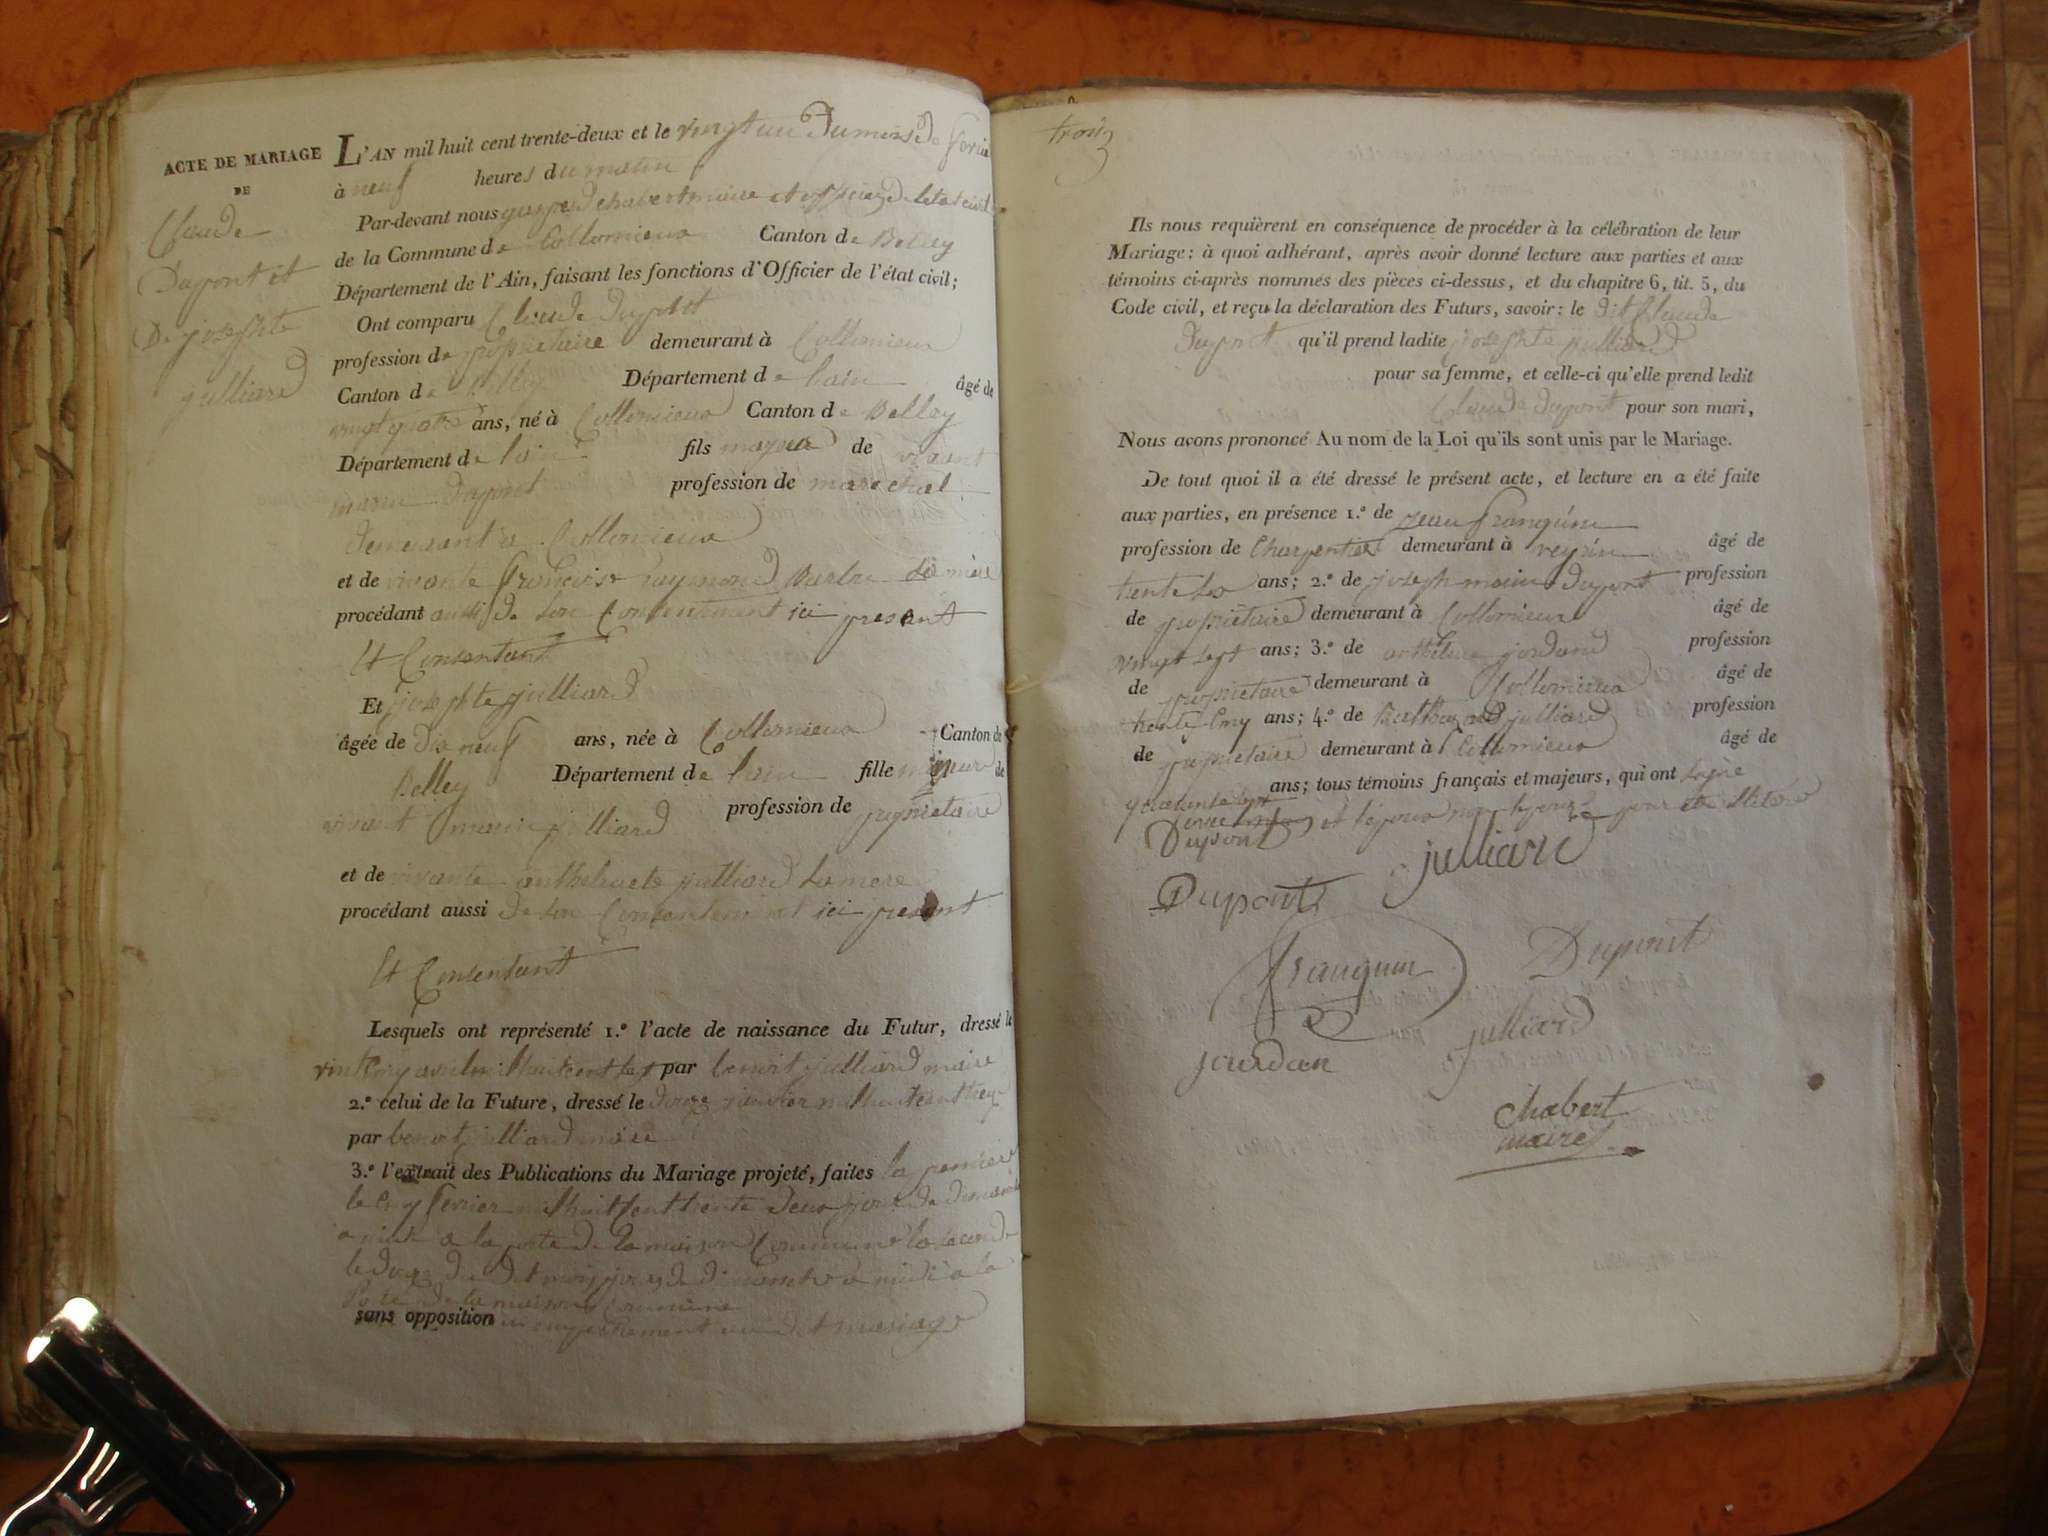 ACTE DE MARIAGE
DE
Claude
Dupont et
De josephte
julliard
L'AN mil huit cent trente-deux et le vingt un du mois de fevrier
à neuf heures du matin
Par-devant nous chabert maire et officier de letat civil
de la Commune de Collomieux Canton de Belley
Département de l'Ain, faisant les fonctions d'Officier de l'état civil;
Ont comparu Claude Dupont
profession de propriétaire demeurant à Collomieux
Canton de Belley Département de lain âgé de
vingt quatre ans, né à Collomieux Canton de Belley
Département de lain fils majeur de vivant
marin Dupont profession de marechal
demeurant a Collomieux
et de vivante francoise raymond Barbe sa mère
procédant aussi de son Consentement ici present
Et Consentant
Et josephte julliard
âgée de dix neuf ans, née à Collomieux Canton de
Belley Département de lain fille mineur de
vivant marin julliard profession de propriétaire
et de vivante anthelmete julliard sa mere
procédant aussi de son Consentement ici present
Et Consentant
Lesquels ont représenté 1.º l'acte de naissance du Futur, dressé le
par benoit julliard maire
2.º celui de la Future, dressé le douze janvier mil huit cent treize
par benoit julliard maire
3.º l'extrait des Publications du Mariage projeté, faites la premiere
le cinq fevrier mil huit Cent trente deux jour de dimanche
a midi a la porte de la maison Commune la seconde
le douze du dit mois jour de dimanche a midi a la
Porte de la maison Commune
sans opposition ni empechement au dit mariage
trois
Ils nous requièrent en conséquence de procéder à la célébration de leur
Mariage: à quoi adhérant, après avoir donné lecture aux parties et aux
témoins ci-après nommés des pièces ci-dessus, et du chapitre 6, tit. 5, du
Code civil, et reçu la déclaration des Futurs, savoir: le dit Claude
Dupont qu'il prend ladite josephte julliard
pour sa femme, et celle-ci qu'elle prend ledit
Claude Dupont pour son mari,
Nous avons prononcé Au nom de la Loi qu'ils sont unis par le Mariage.
De tout quoi il a été dressé le présent acte, et lecture en a été faite
aux parties, en présence 1.º de jean franquin
profession de Charpentier demeurant à veyrin âgé de
trente six ans; 2.º de joseph marin Dupont profession
de propriétaire demeurant à Collomieux âgé de
vingt sept ans; 3.º de anthelme jordand profession
de propriétaire demeurant à Collomieux âgé de
trente cinq ans; 4.º de Balthazard julliard profession
de propriétaire demeurant à Collomieux âgé de
quarante sept ans; tous témoins français et majeurs, qui ont signé
Dupont
julliard
Dupont
franquin
Dupont
jourdan
julliard
chabert
maire